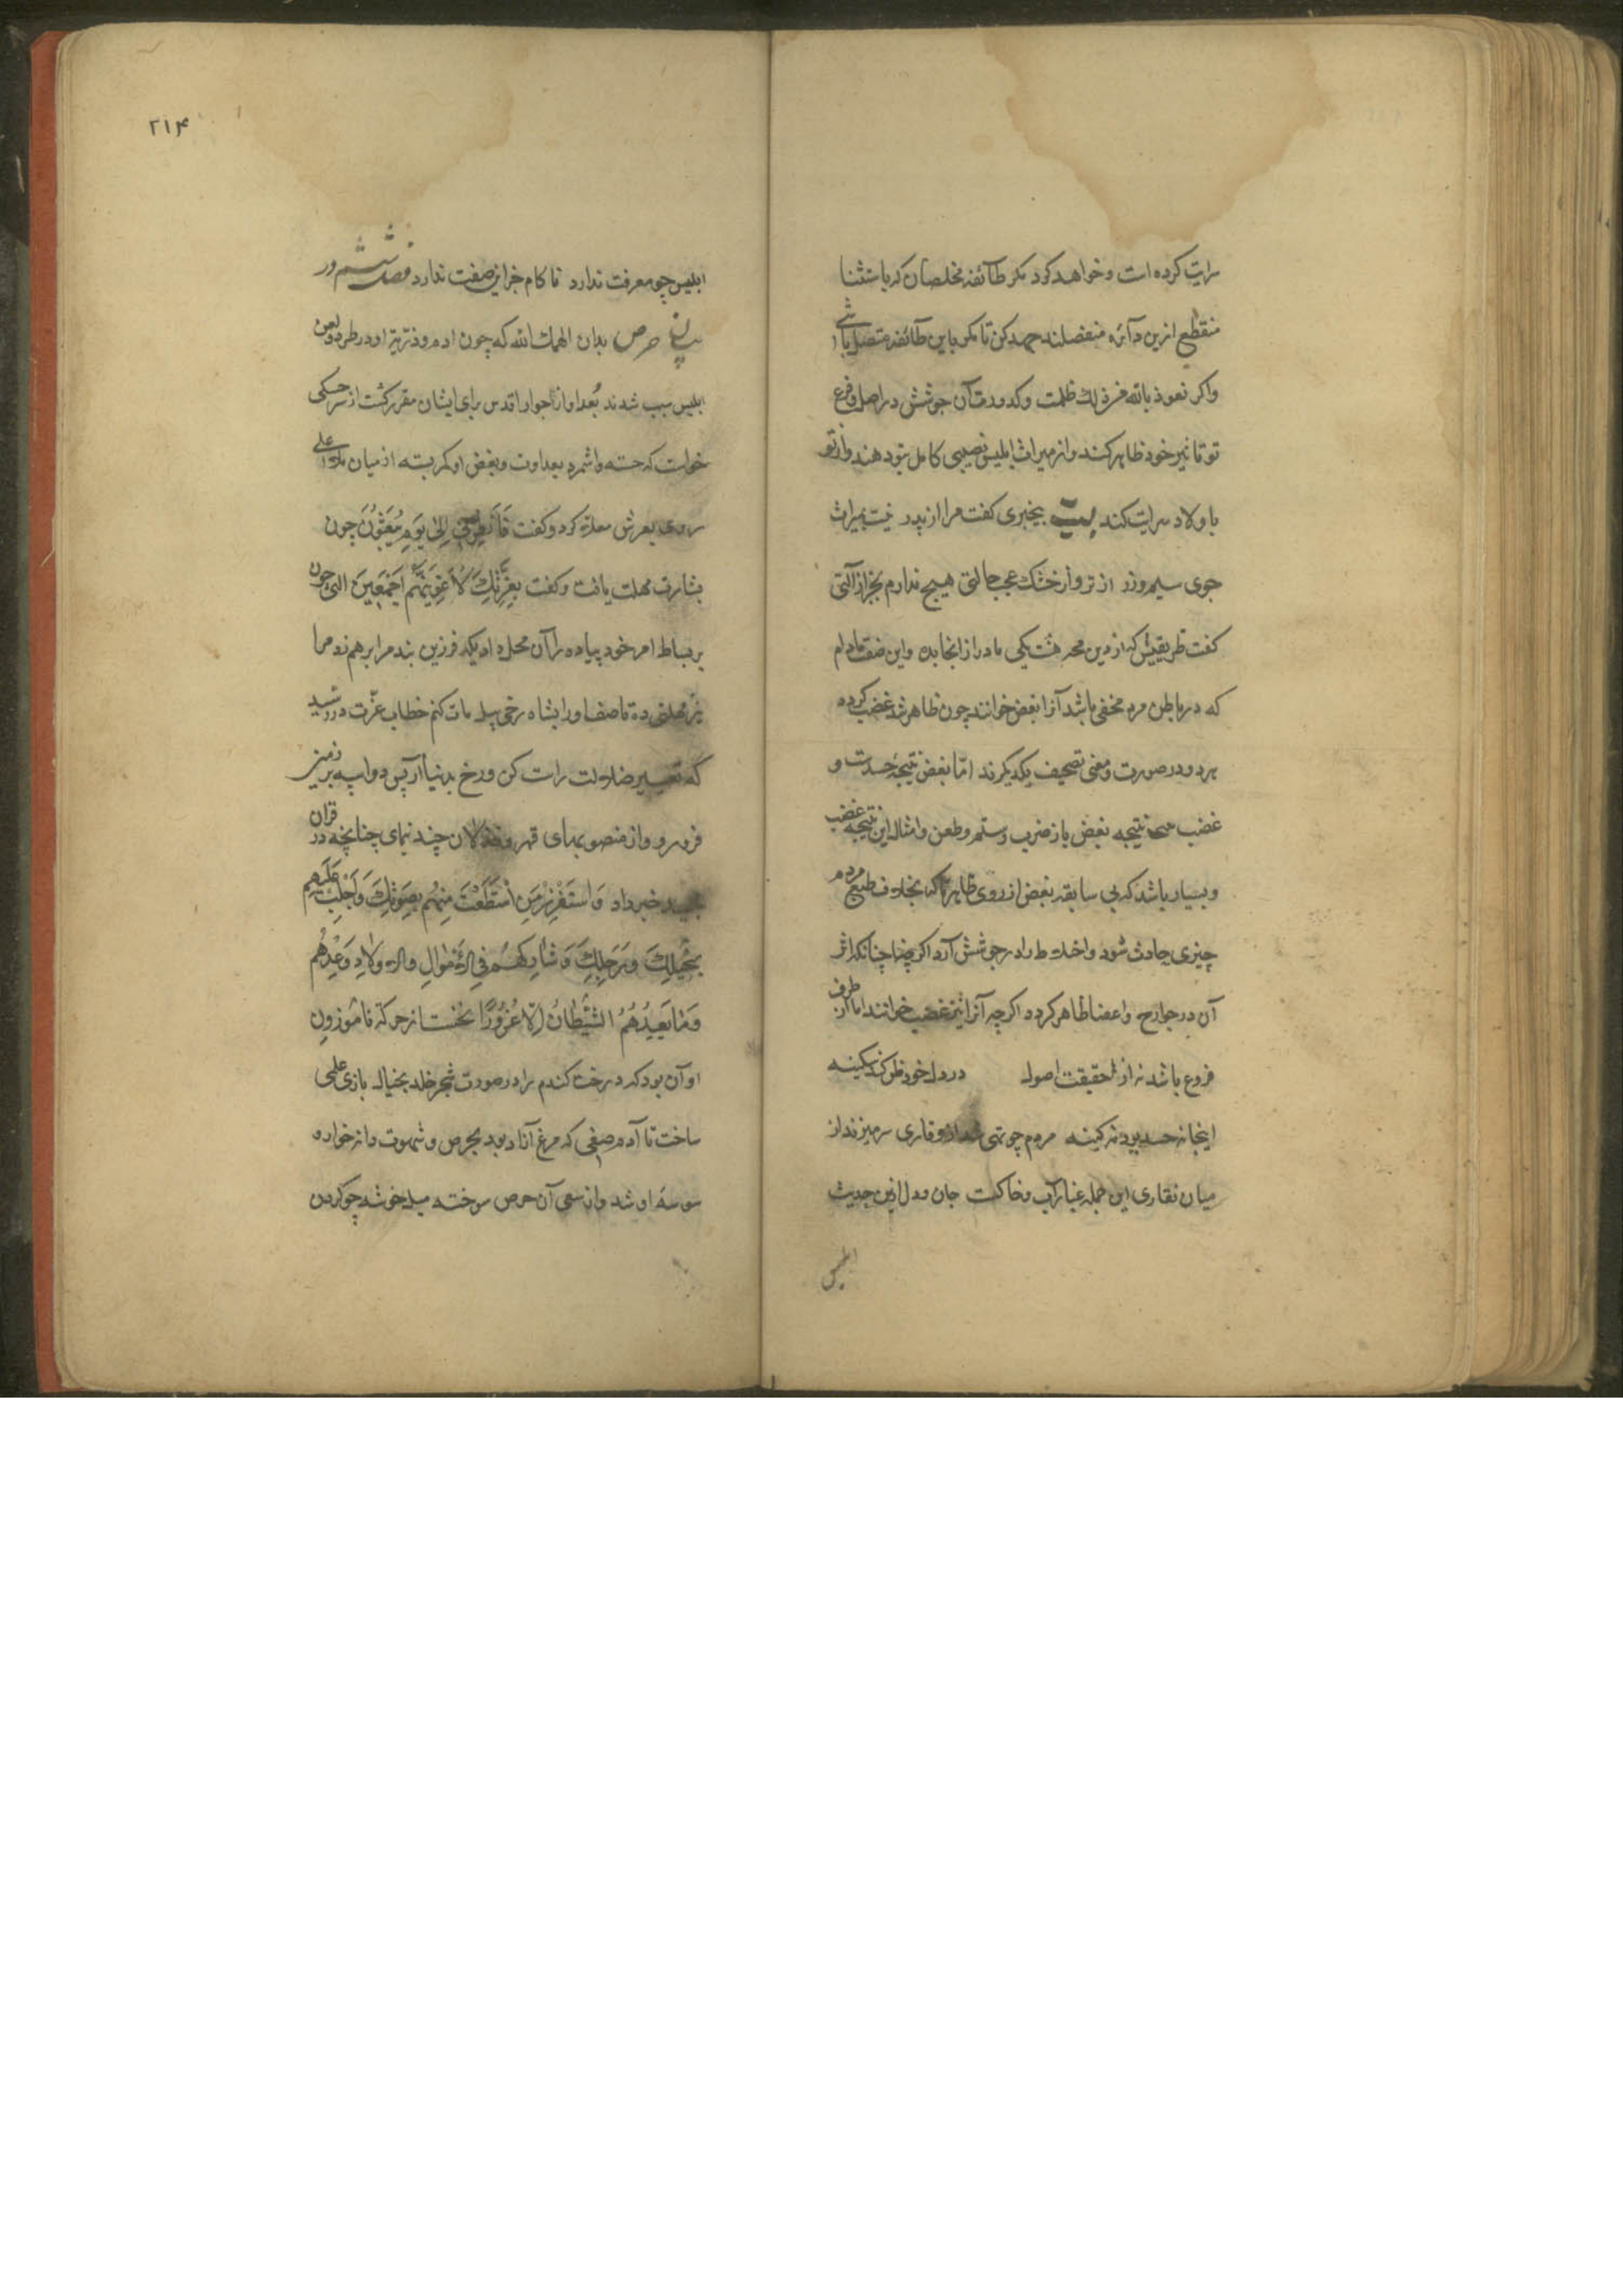 سرایت کرده است و خواهد کرد مکر طائفه مخلصان که باستثنا
منقطع ازین دائره منفصلند جهد کن تا مکر باین طائفه متصل باشی
واکر نعوذ بالله فرذلك ظلمت و کدورت آن جوشش در اصل و فرع
تو تاثیر خود ظاهر کند و از میراث ابلیس نصیبی کامل بتو دهند و از تو
باولاد سرایت کند بیت بیخبری کفت مرا از پدر نیست بمیراث
جوی سیم و زر از تر و از خشك عجب حالتی هیچ ندارم بجز از آلتی
کفت ظریفیش که از دین محر هشت یکی مادر از انجا بده و این صفت مادام
که در باطن مرد مخفی باشد آنرا بغض خوانند چون ظاهر شد غضب کردد
هر دو در صورت و معنی تصحیف یکدیکرند امّا بغض نتیجهٔ حسدست و
غضب نتیجه بغض باز ضرب و ستم و طعن و امثال این نتیجه غضب
و بسیار باشد که بی سابقه بغض از روی ظاهر که بخلاف طبع مردم
چیزی حادث شود و اخلاط را در جوشش آرد اکر چنانکه اثر
آن در جوارح و اعضا ظاهر کردد اکرچه آنرا نیز غضب خوانند اما از طرف
فروع باشد نه از حقیقت اصول در دل خود ظن کند کینه
اینجا نه حسد بود نه کینه مردم چو تهی وقاری سر میزند از
میان نقاری این جمله غبار آب و خاکست جان و دل ازین حدیث
ابلیس
۲۱۴
ابلیس چو معرفت ندارد ناکام جز این صفت ندارد فصل ششم در
بیان حرص بدان الهمك الله که چون ادم و ذریّة او در طرد و لعن
ابلیس سبب شدند بُعد او از جوار اقدس برای ایشان مقرر کشت از سر خسکی
خواست که جسته و اشمرد بعداوت و بغض او کمر بسته از میان ملأ اعلی
روی بعرش معلا کرد و کفت فَاَنْظِرْنِی اِلٰی یَوْمِ یُبْعَثُونَ چون
بشارت مهلت یافت و کفت بِعِزَّتِكَ لَاُغْوِیَنَّهُمْ اَجْمَعِینَ الهی چون
بر بساط امر خود پیاده را آن محل داد یکه فرزین بند مرا بر هم زد مرا
نیز مهلتی ده تا صف او را بشاه رخی پیل مات کنم خطاب عزّت در رسید
که ضلالت راست کن و رخ بدنیا آر پس دو اسپه بر زمین
فرو رو و از منصوبهای قهر و خذلان چند نمای چنانچه در قران
مجید خبر داد وَاسْتَفْزِزْ مَنِ اسْتَطَعْتَ مِنْهُمْ بِصَوْتِكَ وَاَجْلِبْ عَلَیْهِمْ
بِخَیْلِكَ وَرَجِلِكَ وَشَارِكْهُمْ فِی الْاَمْوَالِ وَالْاَوْلَادِ وَعِدْهُمْ
وَمَا یَعِدُهُمُ الشَّیْطَانُ اِلَّا غُرُورًا نخستین حرکة ناموزون
او آن بود که درخت کندم را در صورت شجر خلد بخیال بازی علمی
ساخت تا آدم صفی که مرغ آزاد بود بحرص و شهوت دانه خوار و
سوسهٔ او شد و از سعی آن حرص سوخته میل خوشه چو کردن